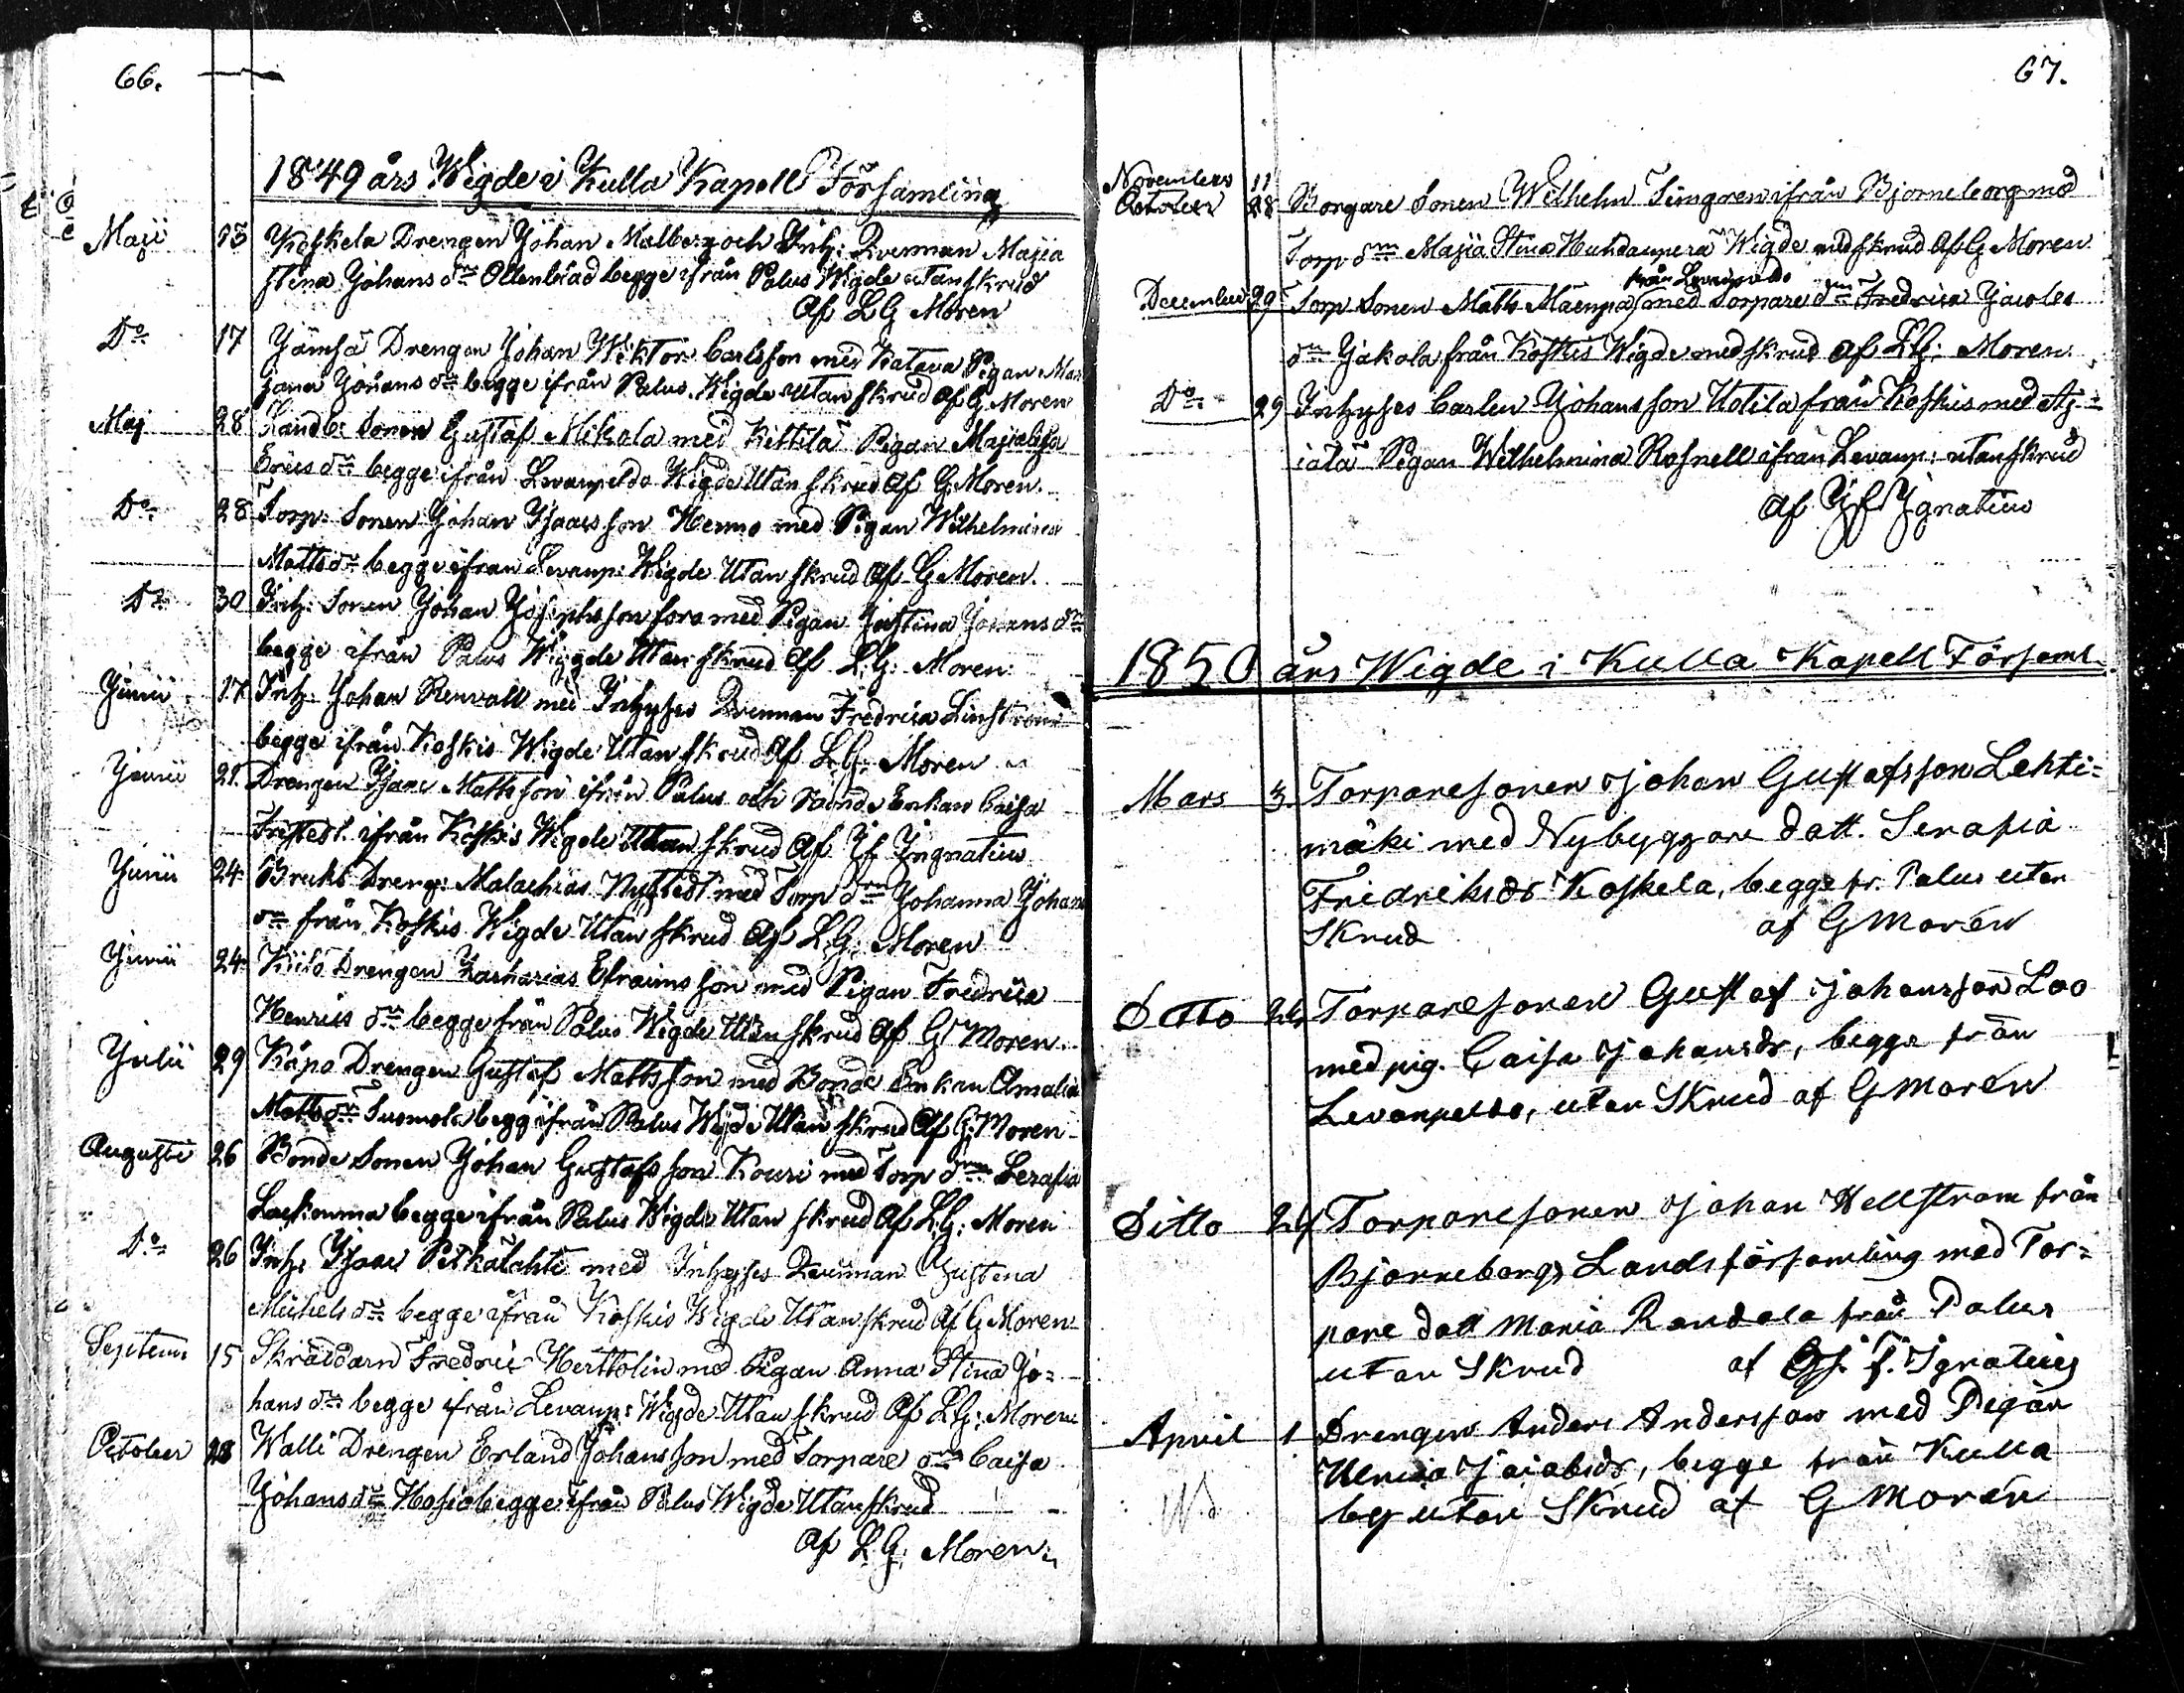 66.
1849 års Wigde i Kulla Kapell Församling
Maji 13 Koskela Drengen Johan Malberg och Inh: Qvennan Majia
Stina Johans dr Ollenblad begge ifrån Palus Wigde utan skrud
Af L G Moren
Do 17 Jämsä Drengen Johan Wiktor Carlsson med Katava Pigan Mar
jana Johans dr begge ifrån Palus Wigde utan skrud Af G Moren
Maj 28 Landb: Sonen Gustaf Mikola med Kittilä Pigan Majialisa
Erics dr begge ifrån Levanpeldo Wigde Utan skrud Af G Moren.
Do 28 Torp: Sonen Johan Isaacsson Hermo med Pigan Wilhelmina
Matts dr begge ifrån Levanp: Wigde Utan skrud Af G Moren.
Do 30 Inh: Sonen Johan Josephsson Sora med Pigan Justina Johans dr
begge ifrån Palus Wigde Utan skrud Af L.G: Moren
Junii 17 Inh: Johan Renvall med Inhyses Qvennan Fredrica Linström
begge ifrån Koskis Wigde Utan skrud Af L.G: Moren
Junii 21. Drengen Isaac Mattsson ifrån Palus och Bonde Enkan Caisa
ifrån Koskis Wigde Utan skrud Af If Ingnatius
Junii 24 Bruks Dreng: Malachias Nystedt med Torp drn Johanna Johans
dr från Koskis Wigde Utan skrud Af L.G: Moren
Junii 24 Kiilo Drengen Zacharias Efraimsson med Pigan Fredrica
Henrics dr begge från Palus Wigde Utan skrud Af G Moren.
Julii 29 Käpo Drengen Gustaf Mattsson med Bonde Enkan Amalia
Matts dr Suomela begg ifrån Palus Wigde Utan skrud Af G: Moren
Augusti 26 Bonde Sonen Johan Gustafsson Kouri med Torp drn Serafia
begge ifrån Palus Wigde Utan skrud Af L.G: Moren
Do 26 Inh: Isaac Pitkälahti med Inhyses Qvennan Gustena
Michels dr begge ifrån Koskis Wigde Utan skrud Af G Moren
Septem: 15 Skräddarn Fredric Herttolin med Pigan Anna Stina Jo=
hans dr begge ifrån Levanp: Wigde Utan skrud Af L.G: Moren
October 28 Walli Drengen Erland Johansson med Torpare drn Caisa
Johans dr Hosio begge ifrån Palus Wigde Utan skrud
Af L.G. Moren
67.
November 11
October 28 Borgare Sonen Wilhelm Timgren ifrån Björneborg med
Torp drn Majia Stina Huhdanperä Wigde med skrud Af G Moren
från Levanpeldo
December 29 Torp Sonen Matts Mäenpä med Torpare drn Fredrica Jacobs
dr Jakola från Koskis Wigde med skrud Af L.G: Moren
Do 29 Inhyses Carlen Johansson Uotila från Koskis med Äj=
iälä Pigan Wilhelmina Rosnell ifrån Levanp: utan skrud
Af If Ignatius
1850 års Wigde i Kulla Kapell Församl.
Mars 3 Torparesonen Johan Gustafsson Lehti=
mäki med Nybyggare dott. Serafia
Fredriksdr Koskela, begge fr. Palus utan
Skrud af G Morén
Ditto 24 Torparesonen Gustaf Johansson Loo
med pig. Caisa Johansdr, begge från
Levanpeldo, utan Skrud af G Morén
Ditto 24 Torparesonen Johan Hellström från
Björneborgs Landsförsamling med Tor=
pare dott Maria Randala från Palus
utan Skrud af If. Ignatius
April 1 Drengen Anders Andersson med Pigan
Ulrica Jacobsdr, begge från Kulla
by utan Skrud af G Morén